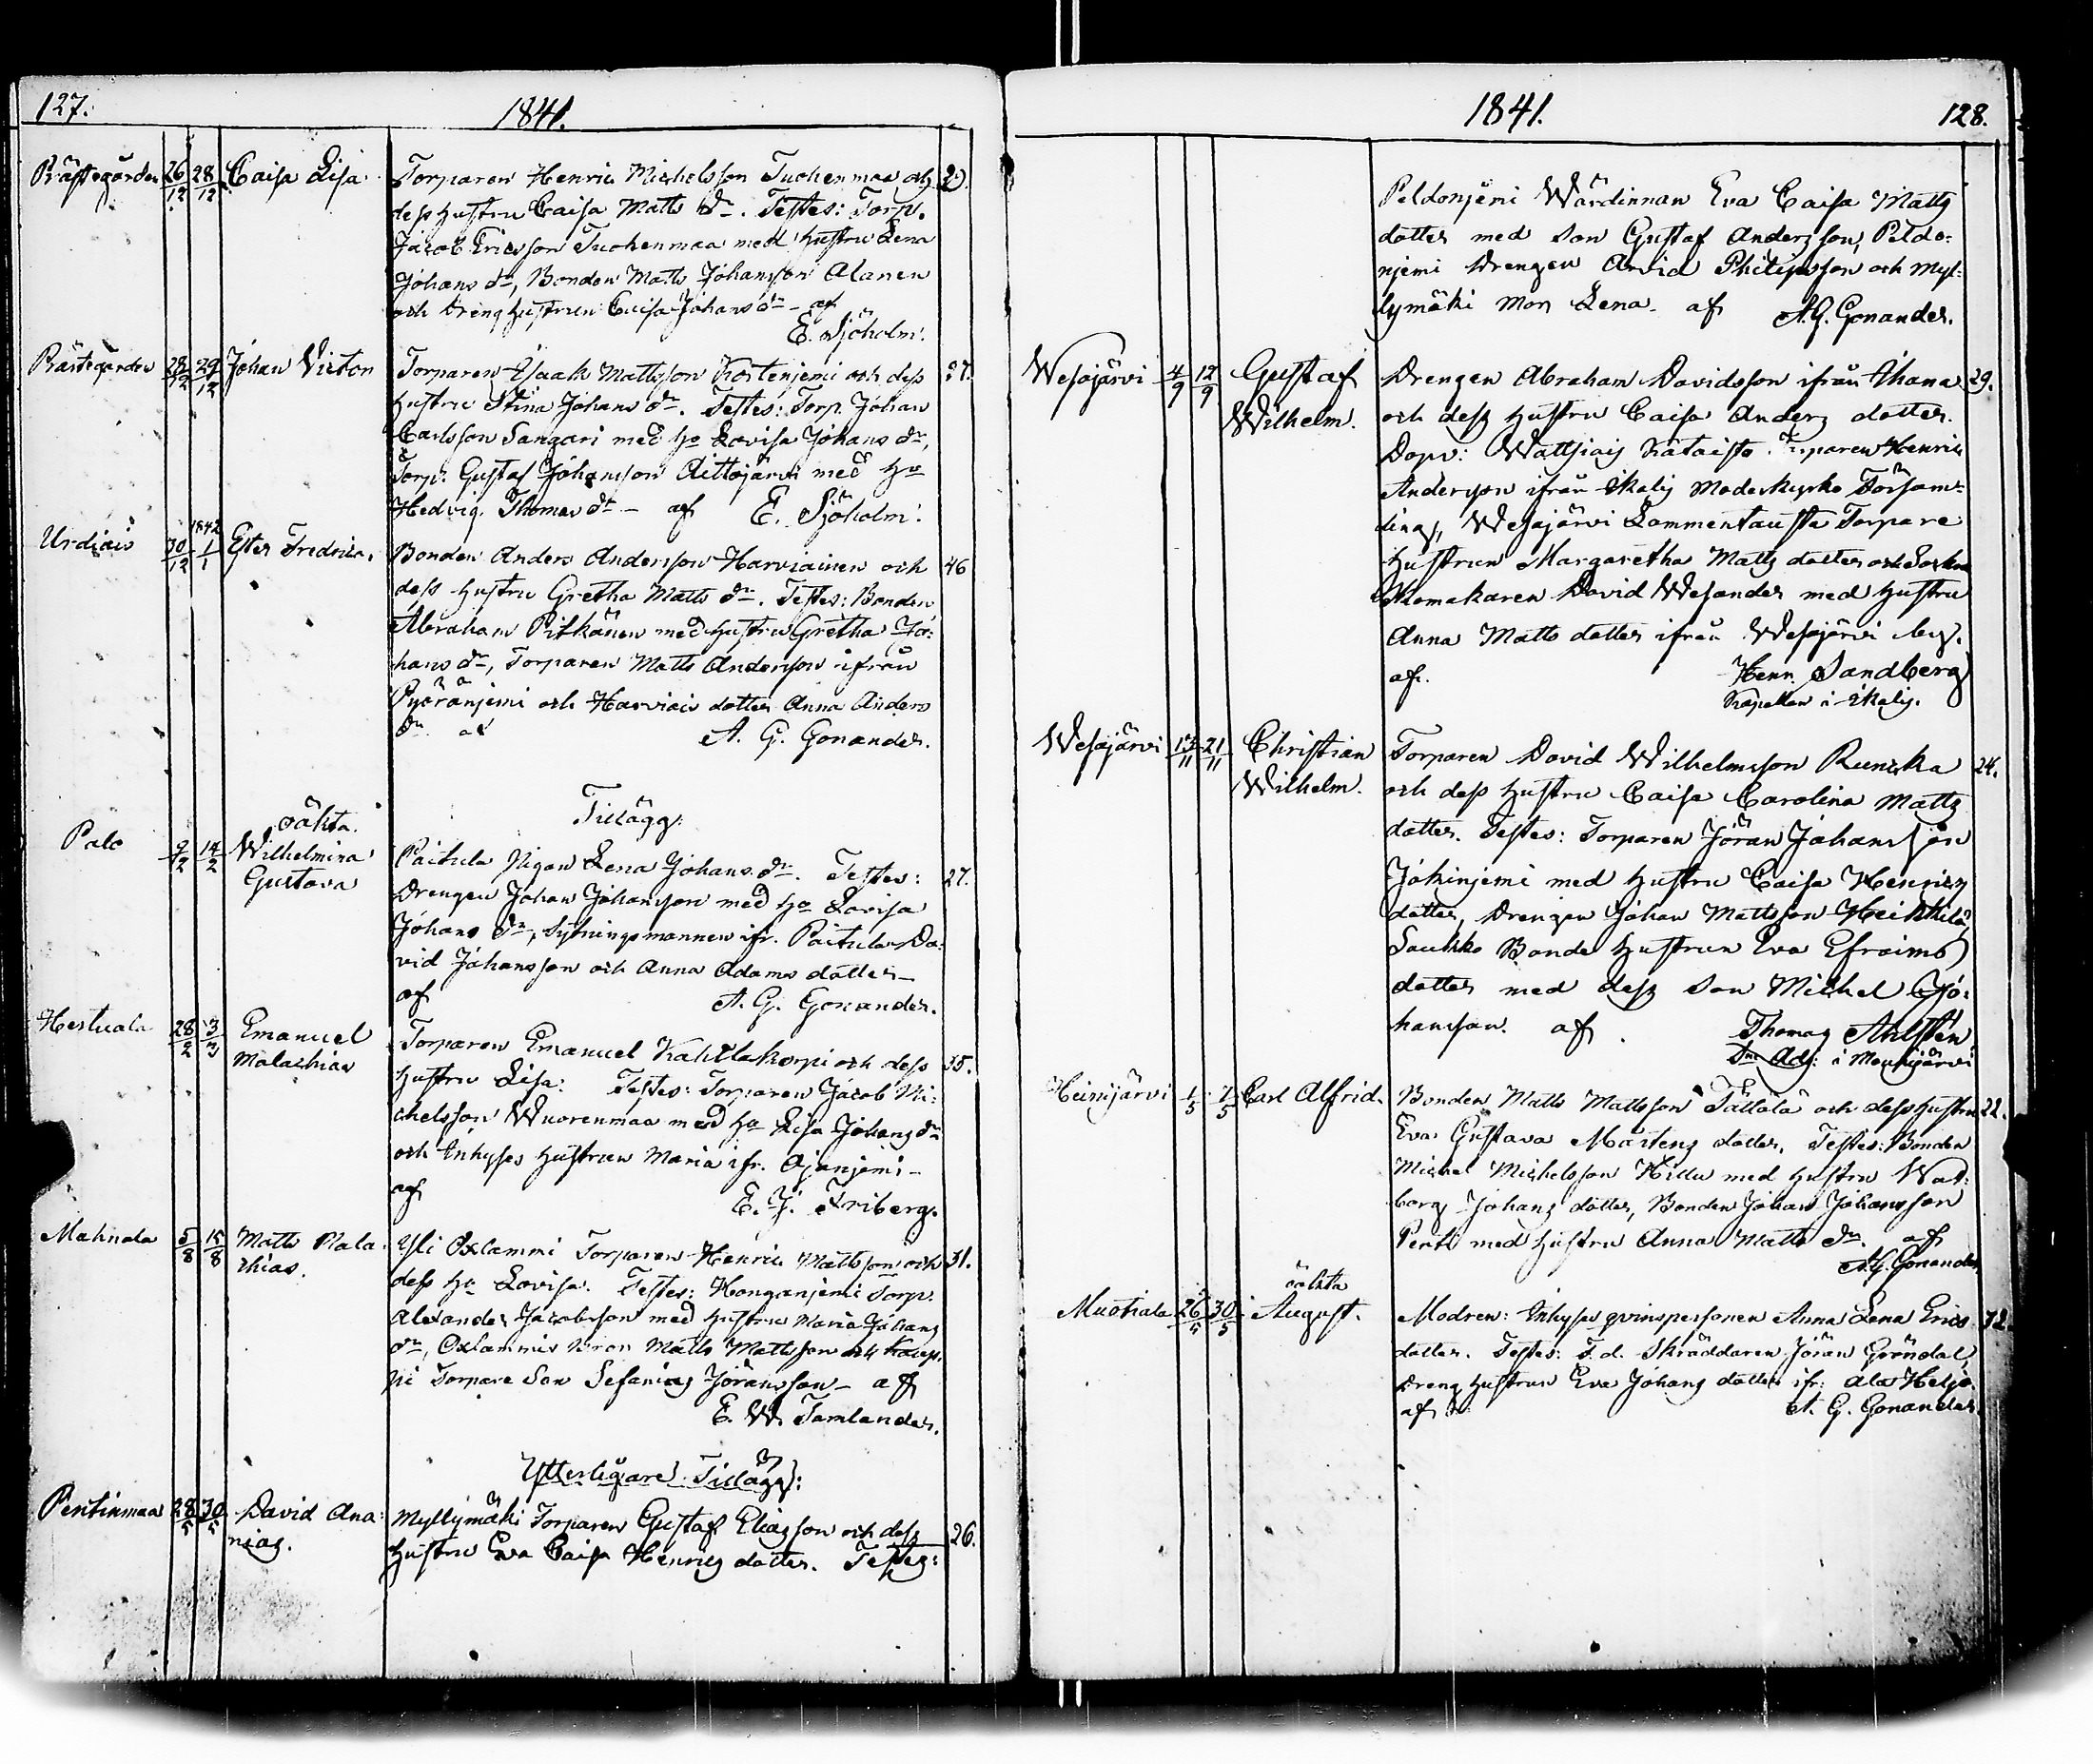 127.
1841.
Prästegården 26/12 28/12 Caisa Lisa. Torparen Henric Michelsson Tuohenmaa och 29.
dess hustru Caisa Matts dr. Testes: Torp.
Jacob Ericsson Tuohenmaa med hustru Lena
Johans dr, Bonden Matts Johansson Alanen
och dränghustrun Caisa Johans dr – af
E. Sjöholm.
Prästegården 28/12 29/12 Johan Victor Torparen Isaak Mattsson Kostenjemi och dess 27.
hustru Stina Johans dr. Testes: Torp. Johan
Carlsson Sangari med ho Lovisa Johans dr,
Torp. Gustaf Johansson Aittojärvi med ho
Hedvig Thomas dr – af E. Sjöholm.
Urdiais 30/12 1842 1/1 Ester Fredrica. Bonden Anders Andersson Harviainen och 46
dess hustru Gretha Matts dr. Testes: Bonden
Abraham Pitkänen med hustru Gretha Jo-
hans dr, Torparen Matts Andersson ifrån
Pyöränjemi och Harviais dotter Anna Anders
dr af A. G. Gonander.
Tillägg:
oäkta.
Palo 9/2 14/2 Wilhelmina Gustava Paitula Pigan Lena Johans dr. Testes: 27.
Drengen Johan Johansson med ho Lovisa
Johans dr, Sytningsmannen ifr. Paitula Da-
vid Johansson och Anna Adams dotter –
af A. G. Gonander.
Hertuala 28/2 3/3 Emanuel Malachias Torparen Emanuel Kahilakorpi och dess 35.
hustru Lisa: Testes: Torparen Jacob Mi-
chelsson Wuorenmaa med ho Lisa Johans dr
och Inhyses hustrun Maria ifr. Ajanjemi –
af E. J. Friberg.
Mahnala 5/8 15/8 Matts Mala- chias. Yli Oxlammi Torparen Henric Mattsson och 31.
dess ho Lovisa. Testes: Honganjemi Torp.
Alexander Jacobsson med hustru Maria Johans
dr, Oxlammis Matts Mattsson och
Torpare Son Sefanias Jöransson – af
E. W. Tamlander.
Ytterligare Tillägg:
Pentinmaa 28/5 30/5 David Ana- nias. Myllymäki Torparen Gustaf Eliasson och dess 26.
hustru Eva Caisa Henrics dotter. Testes:
1841.
128.
Peldonjemi Wärdinnan Eva Caisa Matts
dotter med son Gustaf Andersson, Peldo-
njemi Drengen Arvid Philipsson och Myl-
lymäki Mor Lena. af A. G. Gonander.
Wesajärvi 4/9 12/9 Gustaf Wilhelm. Drengen Abraham Davidsson ifrån Ahana 29.
och dess hustru Caisa Anders dotter.
Dopv: Wattsiais Kataisto Torparen Henric
Andersson ifrån Ikalis Moderkyrko Församl-
ling, Wesajärvi Lammentausta Torpare
hustrun Margaretha Matts dotter och Sockne
Skomakaren David Wesander med hustru
Anna Matts dotter ifrån Wesajärvi by.
af. Henr. Sandberg
Kapellan i Ikalis.
Wesajärvi 14/11 21/11 Christian Wilhelm. Torparen David Wilhelmsson Runska 24.
och dess hustru Caisa Carolina Matts
dotter. Testes: Torparen Jöran Johansson
Jokinjemi med hustru Caisa Henrics
dotter, Drengen Johan Mattsson Heikkilä,
Saukko Bonde hustrun Eva Efraims
dotter med dess son Michel Jo-
hansson. af Thomas Ahlstén
Adj: i Mouhijärvi
Heinijärvi 1/5 7/5 Carl Alfrid. Bonden Matts Mattsson Tättälä och dess hustru 22.
Eva Gustava Mårtens dotter. Testes: Bonden
Michel Michelsson Hillu med hustru Wal-
borg Johans dotter, Bonden Johan Johansson
Perti med hustru Anna Matts dr. af
A. G. Gonander.
oäkta
Muotiala 26/5 30/5 August. Modren: Inhyses qvinspersonen Anna Lena Erics 32.
dotter. Testes: F.d. Skräddaren Jöran Gröndal,
Dreng hustrun Eva Johans dotter ifr: Ala Heljo
af A. G. Gonander.